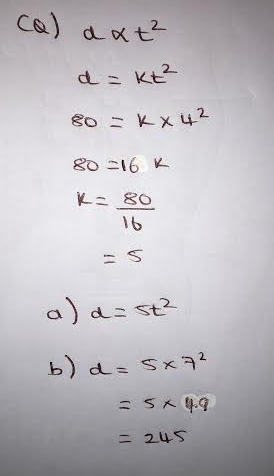 CQ) d ∝ t²
d = kt²
80 = k × 4²
80 = 16 k
k = 80/16
= 5
a) d = 5t²
b) d = 5 × 7²
= 5 × 49
= 245